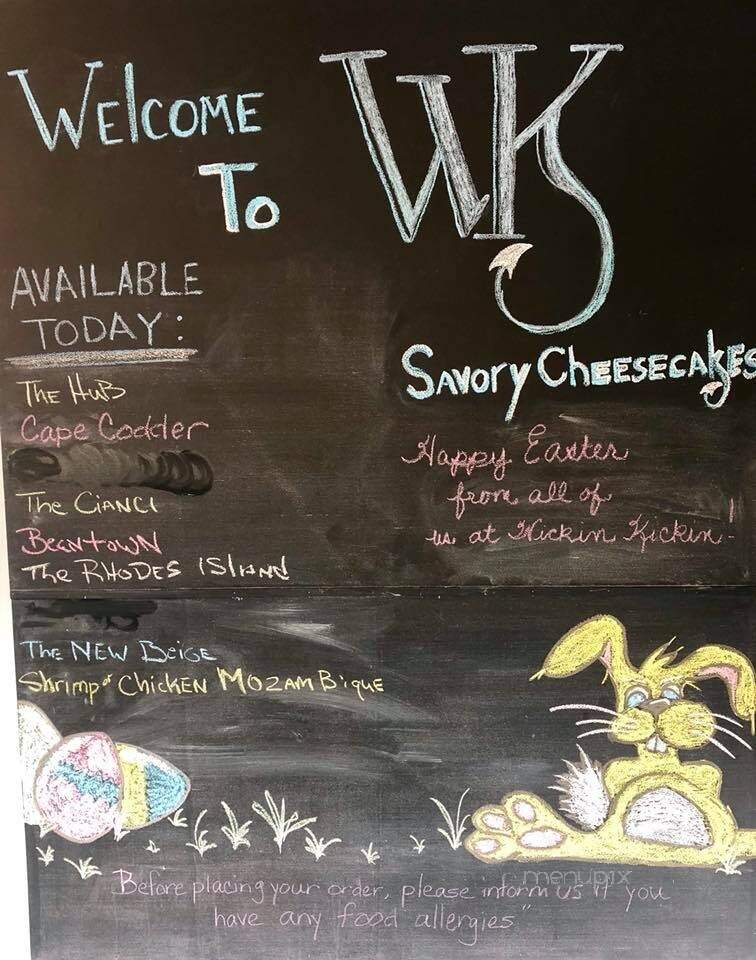 Welcome
To
WK
Savory Cheesecakes
AVAILABLE
TODAY:
The Hub
Cape Codder
The Cianci
Beantown
The RHODES ISlAND
The NEW Beige
Shrimp or ChicKEN MOZAMBique
Happy Easter
from all of
us at Wickin Kickin!
Before placing your order, please inform us if you
have any food allergies"
menupix